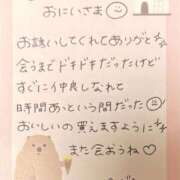 おにいさま
お誘いしてくれてありがと
会うまでドキドキだったけど
すぐに仲良しなれて
時間あっという間だった
おいしいの買えますように
また会おうね♡